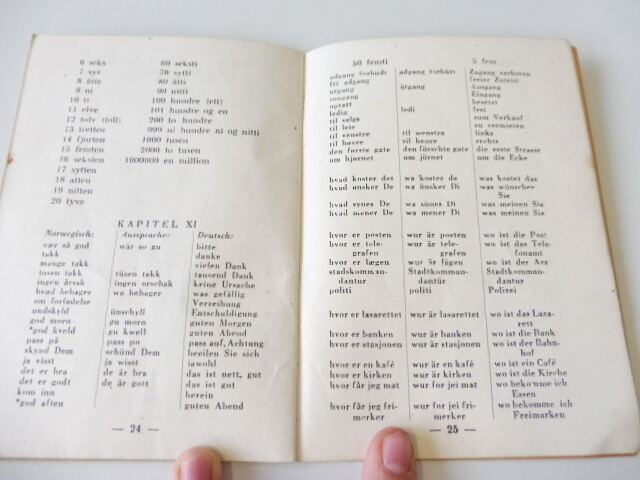 6 seks 60 seksti
7 syv 70 sytti
8 åtte 80 åtti
9 ni 90 nitti
10 ti 100 hundre (ett)
11 elve 101 hundre og en
12 tolv (toll) 200 to hundre
13 tretten 999 ni hundre ni og nitti
14 fjorten 1000 tusen
15 femten 2000 to tusen
16 seksten 1000000 en million
17 sytten
18 atten
19 nitten
20 tyve
KAPITEL XI
Norwegisch: Aussprache: Deutsch:
vær så god wär so gu bitte
takk danke
mange takk vielen Dank
tusen takk tüsen takk tausend Dank
ingen årsak ingen orschak keine Ursache
hvad behager wa behager was gefällig
om forladelse Verzeihung
undskyld ünschyll Entschuldigung
god morn gu morn guten Morgen
*god kveld gu kwell guten Abend
pass på pass po pass auf, Achtung
skynd Dem schünd Dem beeilen Sie sich
ja visst ja wisst jawohl
det er bra de är bra das ist nett, gut
det er godt de är gott das ist gut
kom inn herein
*god aften guten Abend
— 24 —
50 femti 5 fem
adgang forbudt adgang forbütt Zugang verboten
fri adgang freier Zutritt
utgang ütgang Ausgang
inngang Eingang
optatt besetzt
ledig ledi frei
til salgs zum Verkauf
til leie zu vermieten
til venstre til wenstre links
til høire til heure rechts
den første gate den föeschte gate die erste Strasse
om hjørnet um jörnet um die Ecke
hvad koster det wa koster de was kostet das
hvad ønsker De wa ünsker Di was wünschen Sie
hvad synes De wa sünes Di was meinen Sie
hvad mener De wa mener Di was meinen Sie
hvor er posten wur är posten wo ist die Post
hvor er tele- wur är tele- wo ist das Tele-
grafen grafen fonamt
hvor er lægen wur är lägen wo ist der Arzt
stadskomman- Stadtkomman- Stadtkomman-
dantur dantür dantur
politi politi Polizei
hvor er lasarettet wur är lasarettet wo ist das Laza-
rett
hvor er banken wur är banken wo ist die Bank
hvor er stasjonen wur är stasjonen wo ist der Bahn-
hof
hvor er en kafé wur är en kafé wo ist ein Café
hvor er kirken wur är kirken wo ist die Kirche
hvor får jeg mat wur for jei mat wo bekomme ich
Essen
hvor får jeg fri- wur for jei fri- wo bekomme ich
merker merker Freimarken
— 25 —